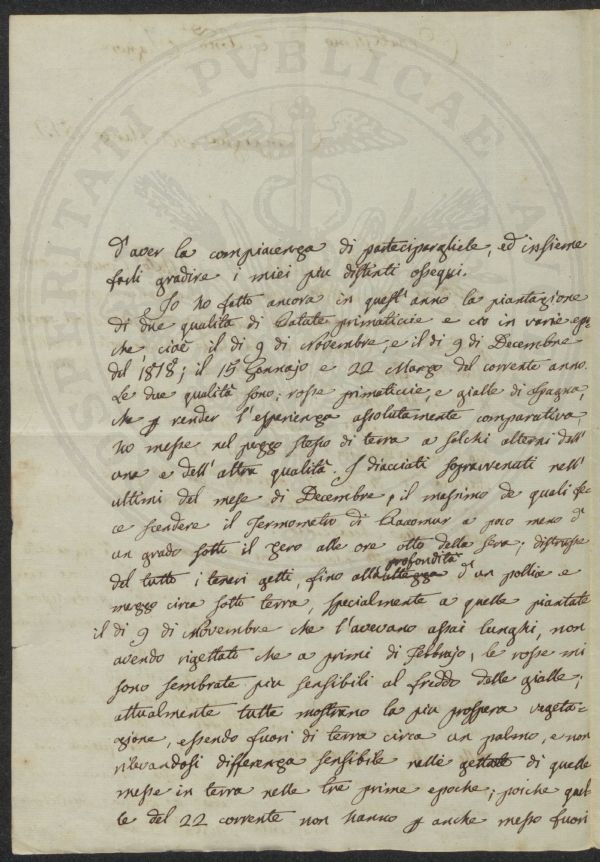 PROSPERITATI PVBLICAE
d'aver la compiacenza di partecipargliele, ed insieme
farli gradire i miei piu distinti ossequi.
Io ho fatto ancora in quest'anno la piantazione
di due qualità di Patate primaticcie e ciò in varie epo-
che, cioè il di 9 di Novembre, e il di 9 di Decembre
del 1818; il 15 Gennajo e 22 Marzo del corrente anno.
Le due qualità sono: rosse primaticcie, e gialle di Spagna,
che p render l'esperienza assolutamente comparativa,
ho messe nel pezzo stesso di terra a solchi alterni dell'
una e dell'altra qualità. I diacciati sopravvenuti nell'
ultimi del mese di Decembre, il massimo de quali fe-
ce scendere il Termometro di a poco meno d'
un grado sotto il zero alle ore otto della sera; distrusse
del tutto i teneri getti, fino alla profondità d'un pollice e
mezzo circa sotto terra, specialmente a quelle piantate
il di 9 di Novembre che l'avevano assai lunghi, non
avendo rigettato che a primi di Febbrajo, le rosse mi
sono sembrate piu sensibili al freddo delle gialle;
attualmente tutte mostrano la piu prospera vegeta-
zione, essendo fuori di terra circa un palmo, e non
rilevandosi differenza sensibile nelle gettate di quelle
messe in terra nelle tre prime epoche; poiche quel-
le del 22 corrente non hanno p anche messo fuori